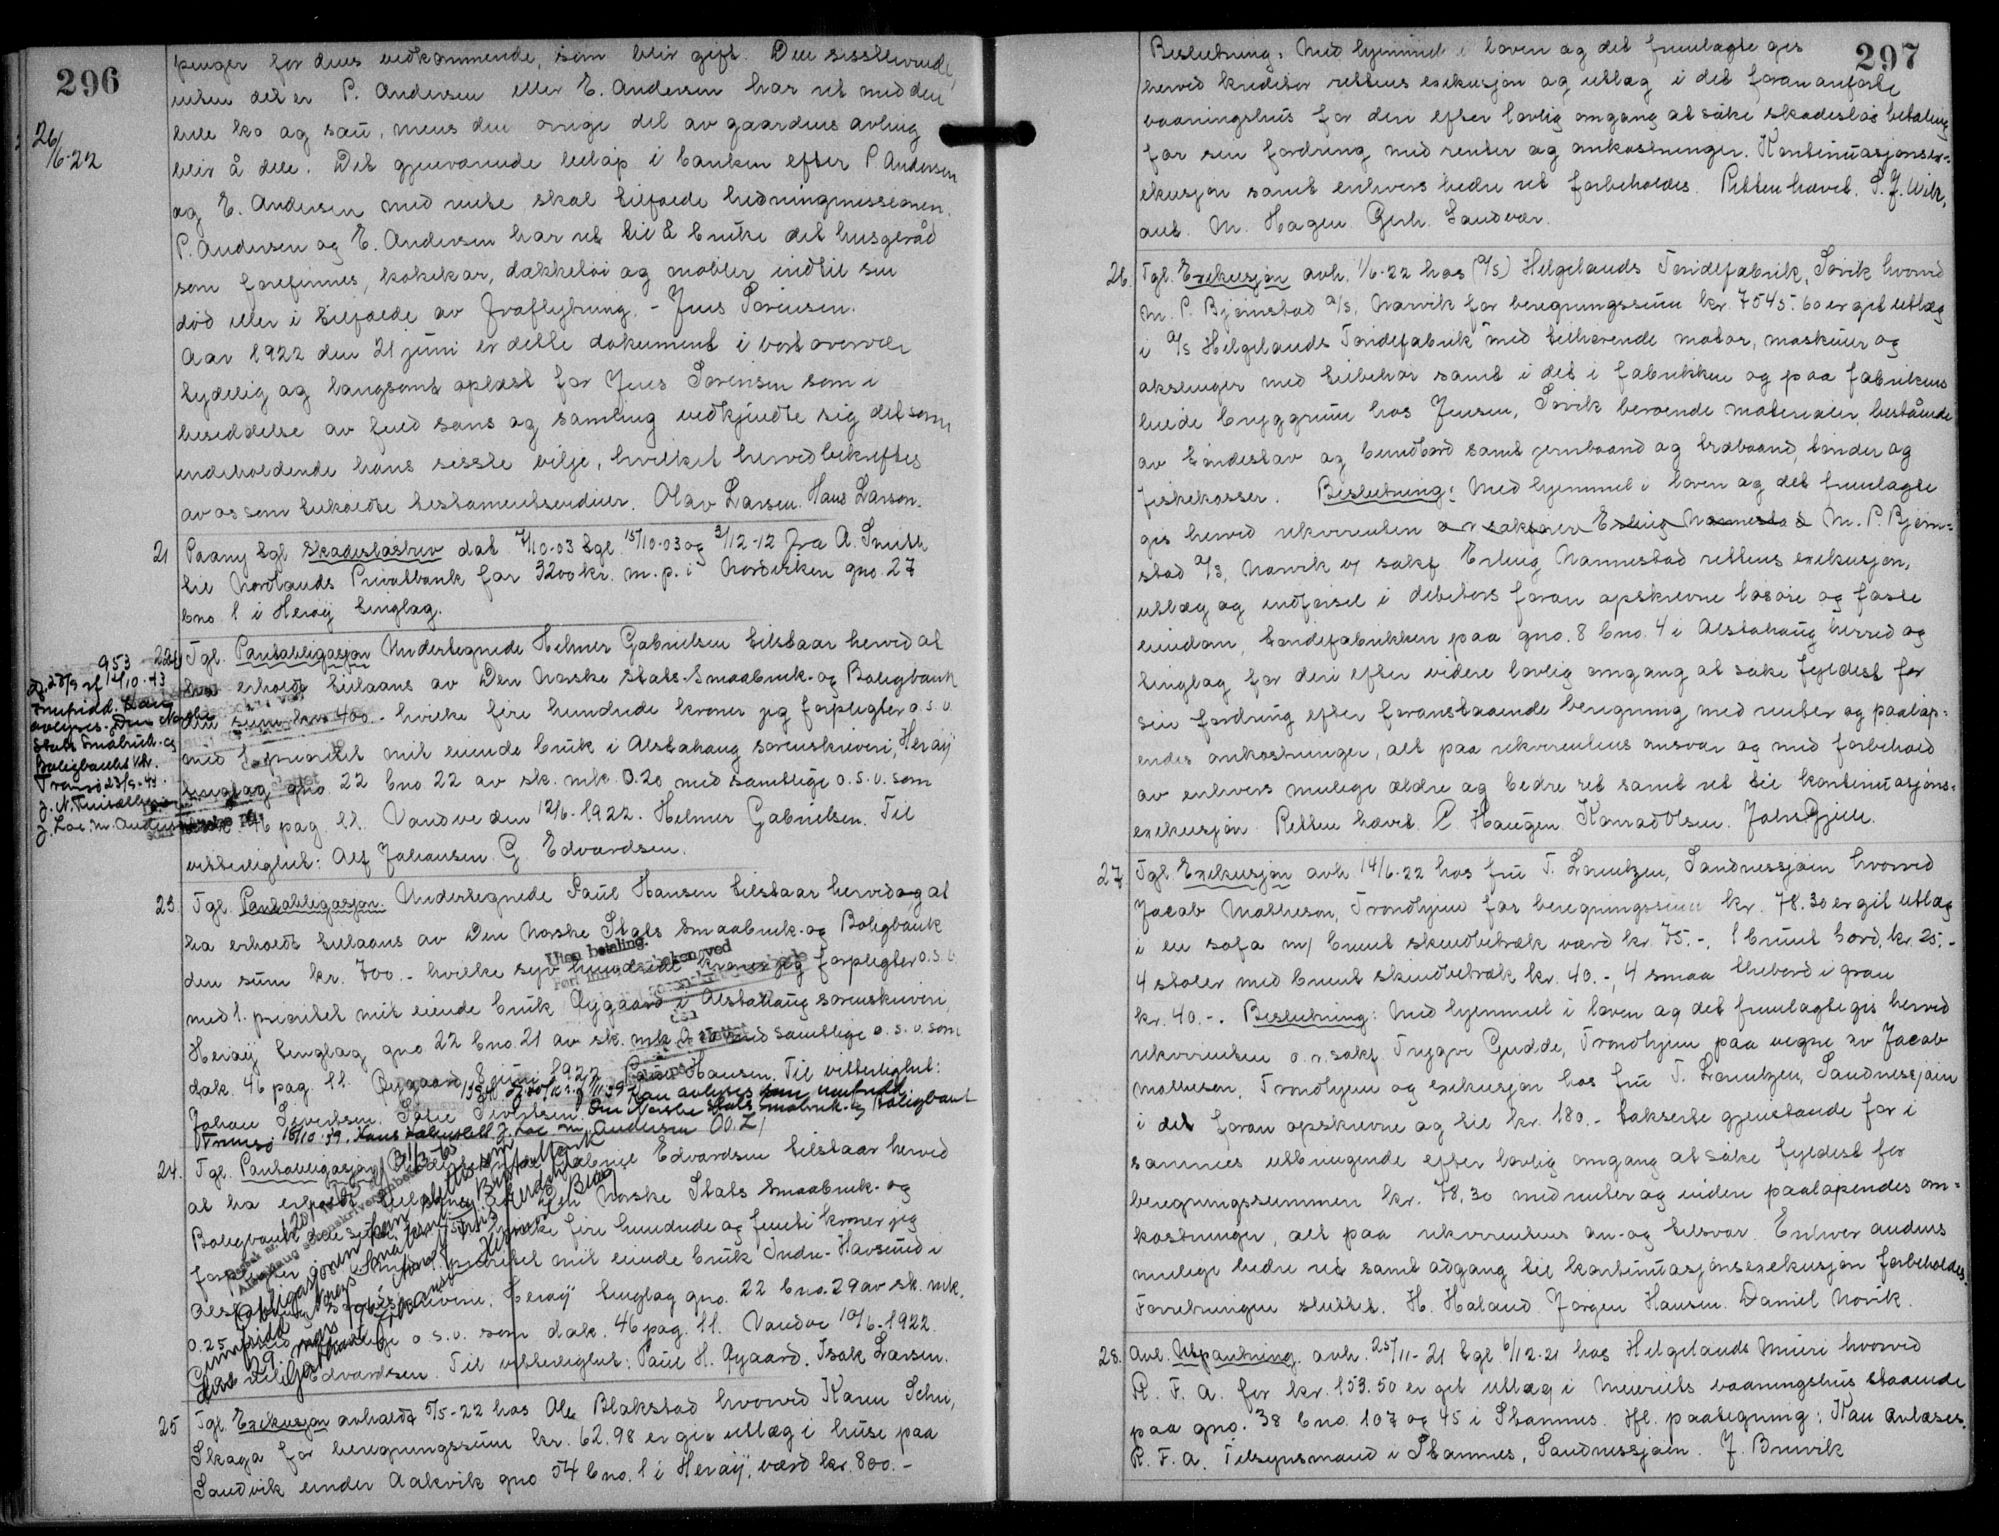 296
26/6-22
penger for dens vedkommende, som blir gift. Den sisstlevende,
enten det er P. Andersen eller E. Andersen har ret med den
ene ko og sau, mens den øvrige del av gaardens avling
blir å dele. Det gjenværende beløp i banken efter P Andersen
og E. Andersen med rente skal tilfalde hedningmissionen.
P. Andersen og E. Andersen har ret til å bruke det husgeråd
som forefinnes, kokekar, dækketøi og møbler indtil sin
død eller i tilfælde av fraflytning. - Jens Sørensen.
Aar 1922 den 21 juni er dette dokument i vort overvær
tydelig og langsomt oplæst for Jens Sørensen som i
besiddelse av fuld sans og samling vedkjendte sig det som
indeholdende hans sisste vilje, hvilket herved bekreftes
av os som tilkaldte testamentsvidner. Olav Larsen. Hans Larson.
21 Paany tgl. Skadesløsbrev dat 7/10-03 tgl. 15/10-03 og 3/12-12 fra A. Smith
til Nordlands Privatbank for 3200 kr. m. p. i Nordviken gno. 27
bno. 1 i Herøy tinglag.
22. Tgl. Pantobligasjon Undertegnede Helmer Gabrielsen tilstaar herved at
ha erholdt tillaans av Den Norske Stats-Smaabruk- og Boligbank
den sum kr. 400.- hvilke fire hundrede kroner jeg forpligter o.s.v.
med 1. prioritet mit eiende bruk i Alstahaug sorenskriveri, Herøy
tinglag gno. 22 bno 22 av sk. mk. 0.20 med samtlige o.s.v. som
46 pag. 11. Vandve den 12/6-1922. Helmer Gabrielsen. Til
vitterlighet: Alf Johansen. G. Edvardsen.
953
12/10-43
avlyses. Den Norske
Stats Småbruk- og
Boligbank
Tromsø 23/9-43.
23. Tgl. Pantobligasjon. Undertegnede Paul Hansen tilstaar herved og at
ha erholdt tillaans av Den Norske Stats Smaabruk- og Boligbank
den sum kr. 700.- hvilke syv hundrede kroner jeg forpligter o.s.v.
med 1. prioritet mit eiende bruk Rygaard i Alstahaug sorenskriveri,
Herøy tinglag gno 22 bno. 21 av sk. mk. med samtlige o.s.v. som
dok. 46 pag. 11. Rygaard 8 juni 1922 Paul Hansen. Til vitterlighet:
Johan Sivertsen. Sivertsen.
Uten betaling.
Kan avlyses som innfridd
Den Norske Stats Småbruk- og Boligbank
Tromsø 18/10-39.
24. Tgl. Pantobligasjon Edvardsen tilstaar herved
at ha erholdt Norske Stats Smaabruk- og
Boligbank den sum hvilke fire hundrede og femti kroner jeg
forpligter prioritet mit eiende bruk Indre-Havsund i
Herøy tinglag gno. 22 bno. 29 av sk. mk.
0.25 med samtlige o s.v. som dok. 46 pag. 11. Vandve 10/6-1922.
Edvardsen. Til vitterlighet: Paul H. Rygaard. Isak Larsen.
25 Tgl. Exekusjon avholdt 5/5-22 hos Ole Blakstad hvorved Karen Schei,
Skaga for beregningssum kr. 62.98 er git utlæg i huse paa
Sandvik under Aakvik gno 54 bno. 1 i Herøy, værd kr. 800.-
297
Beslutning: Med hjemmel i loven og det fremlagte gis
herved kreditor rettens exekusjon og utlæg i det foran anførte
vaaningshus for deri efter lovlig omgang at søke skadesløs betaling
for sin fordring med renter og omkostninger. Kontinuasjonsex-
ekusjon samt enhvers bedre ret forbeholdes. Retten hævet. S. J. Wik,
aut. M. Hagen Gerh. Sandvær.
26. Tgl. Exekusjon avh. 1/6-22 hos (A/S) Helgelands Tøndefabrik, Søvik hvorved
M. P. Bjørnstad A/S, Narvik for beregningssum kr. 7545.60 er git utlæg
i A/S Helgelands Tøndefabrik med tilhørende motor, maskiner og
akslinger med tilbehør samt i det i fabrikken og paa fabrikens
leiede bryggrum hos Jensen, Søvik beroende materialer bestående
av tøndestav og bundbord samt jernbaand og træbaand, tønder og
fiskekasser. Beslutning: Med hjemmel i loven og det fremlagte
gis herved rekvirenten o r sakfører Erling Nannestad M. P. Bjørn-
stad A/S, Narvik v/ sakf. Erling Nannestad rettens exekusjon,
utlæg og indførsel i debitors foran opskrevne løsøre og faste
eiendom, tøndefabrikken paa gno. 8 bno. 4 i Alstahaug herred og
tinglag for deri efter videre lovlig omgang at søke fyldest for
sin fordring efter foranstaaende beregning med renter og paaløp-
endes omkostninger, alt paa rekvirentens ansvar og med forbehold
av enhvers mulige ældre og bedre ret samt ret til kontinuasjons-
exekusjon. Retten hævet. C. Haugen. Konrad Olsen. Johs Gjein.
27 Tgl. Exekusjon avh. 14/6-22 hos fru T. Lorentzen, Sandnessjøen hvorved
Jacob Matheson, Trondhjem for beregningssum kr. 78.30 er git utlæg
i en sofa m/ brunt skindbetræk værd kr. 75.-, 1 brunt bord, kr. 25.-
4 stoler med brunt skindbetræk kr. 40.-, 4 smaa thebord i gran
kr. 40.-. Beslutning: Med hjemmel i loven og det fremlagte gis herved
rekvirenten o. r. sakf. Trygve Gudde, Trondhjem paa vegne av Jacob
Matheson, Trondhjem og exekusjon hos fru T. Lorentzen, Sandnessjøen
i det foran opskrevne og til kr. 180.- takserte gjenstande for i
sammes utbringende efter lovlig omgang at søke fyldest for
beregningssummen kr. 78,30 med renter og videre paaløpendes om-
kostninger, alt paa rekvirentens an- og tilsvar. Enhver andens
mulige bedre ret samt adgang til kontinuasjonsexekusjon forbeholdes.
Forretningen sluttet. H. Haland. Jørgen Hansen. Daniel Novik.
28. Avl. Utpantning. avh. 25/11-21 tgl 6/12-21 hos Helgelands Meieri hvorved
R. F. A. for kr. 153.50 er git utlæg i Meieriets vaaningshus staaende
paa gno. 38 bno. 107 og 45 i Stamnes. Hfl. paategning: Kan avlæses.
R. F. A. Tilsynsmand i Stamnes, Sandnessjøen. J. Breivik